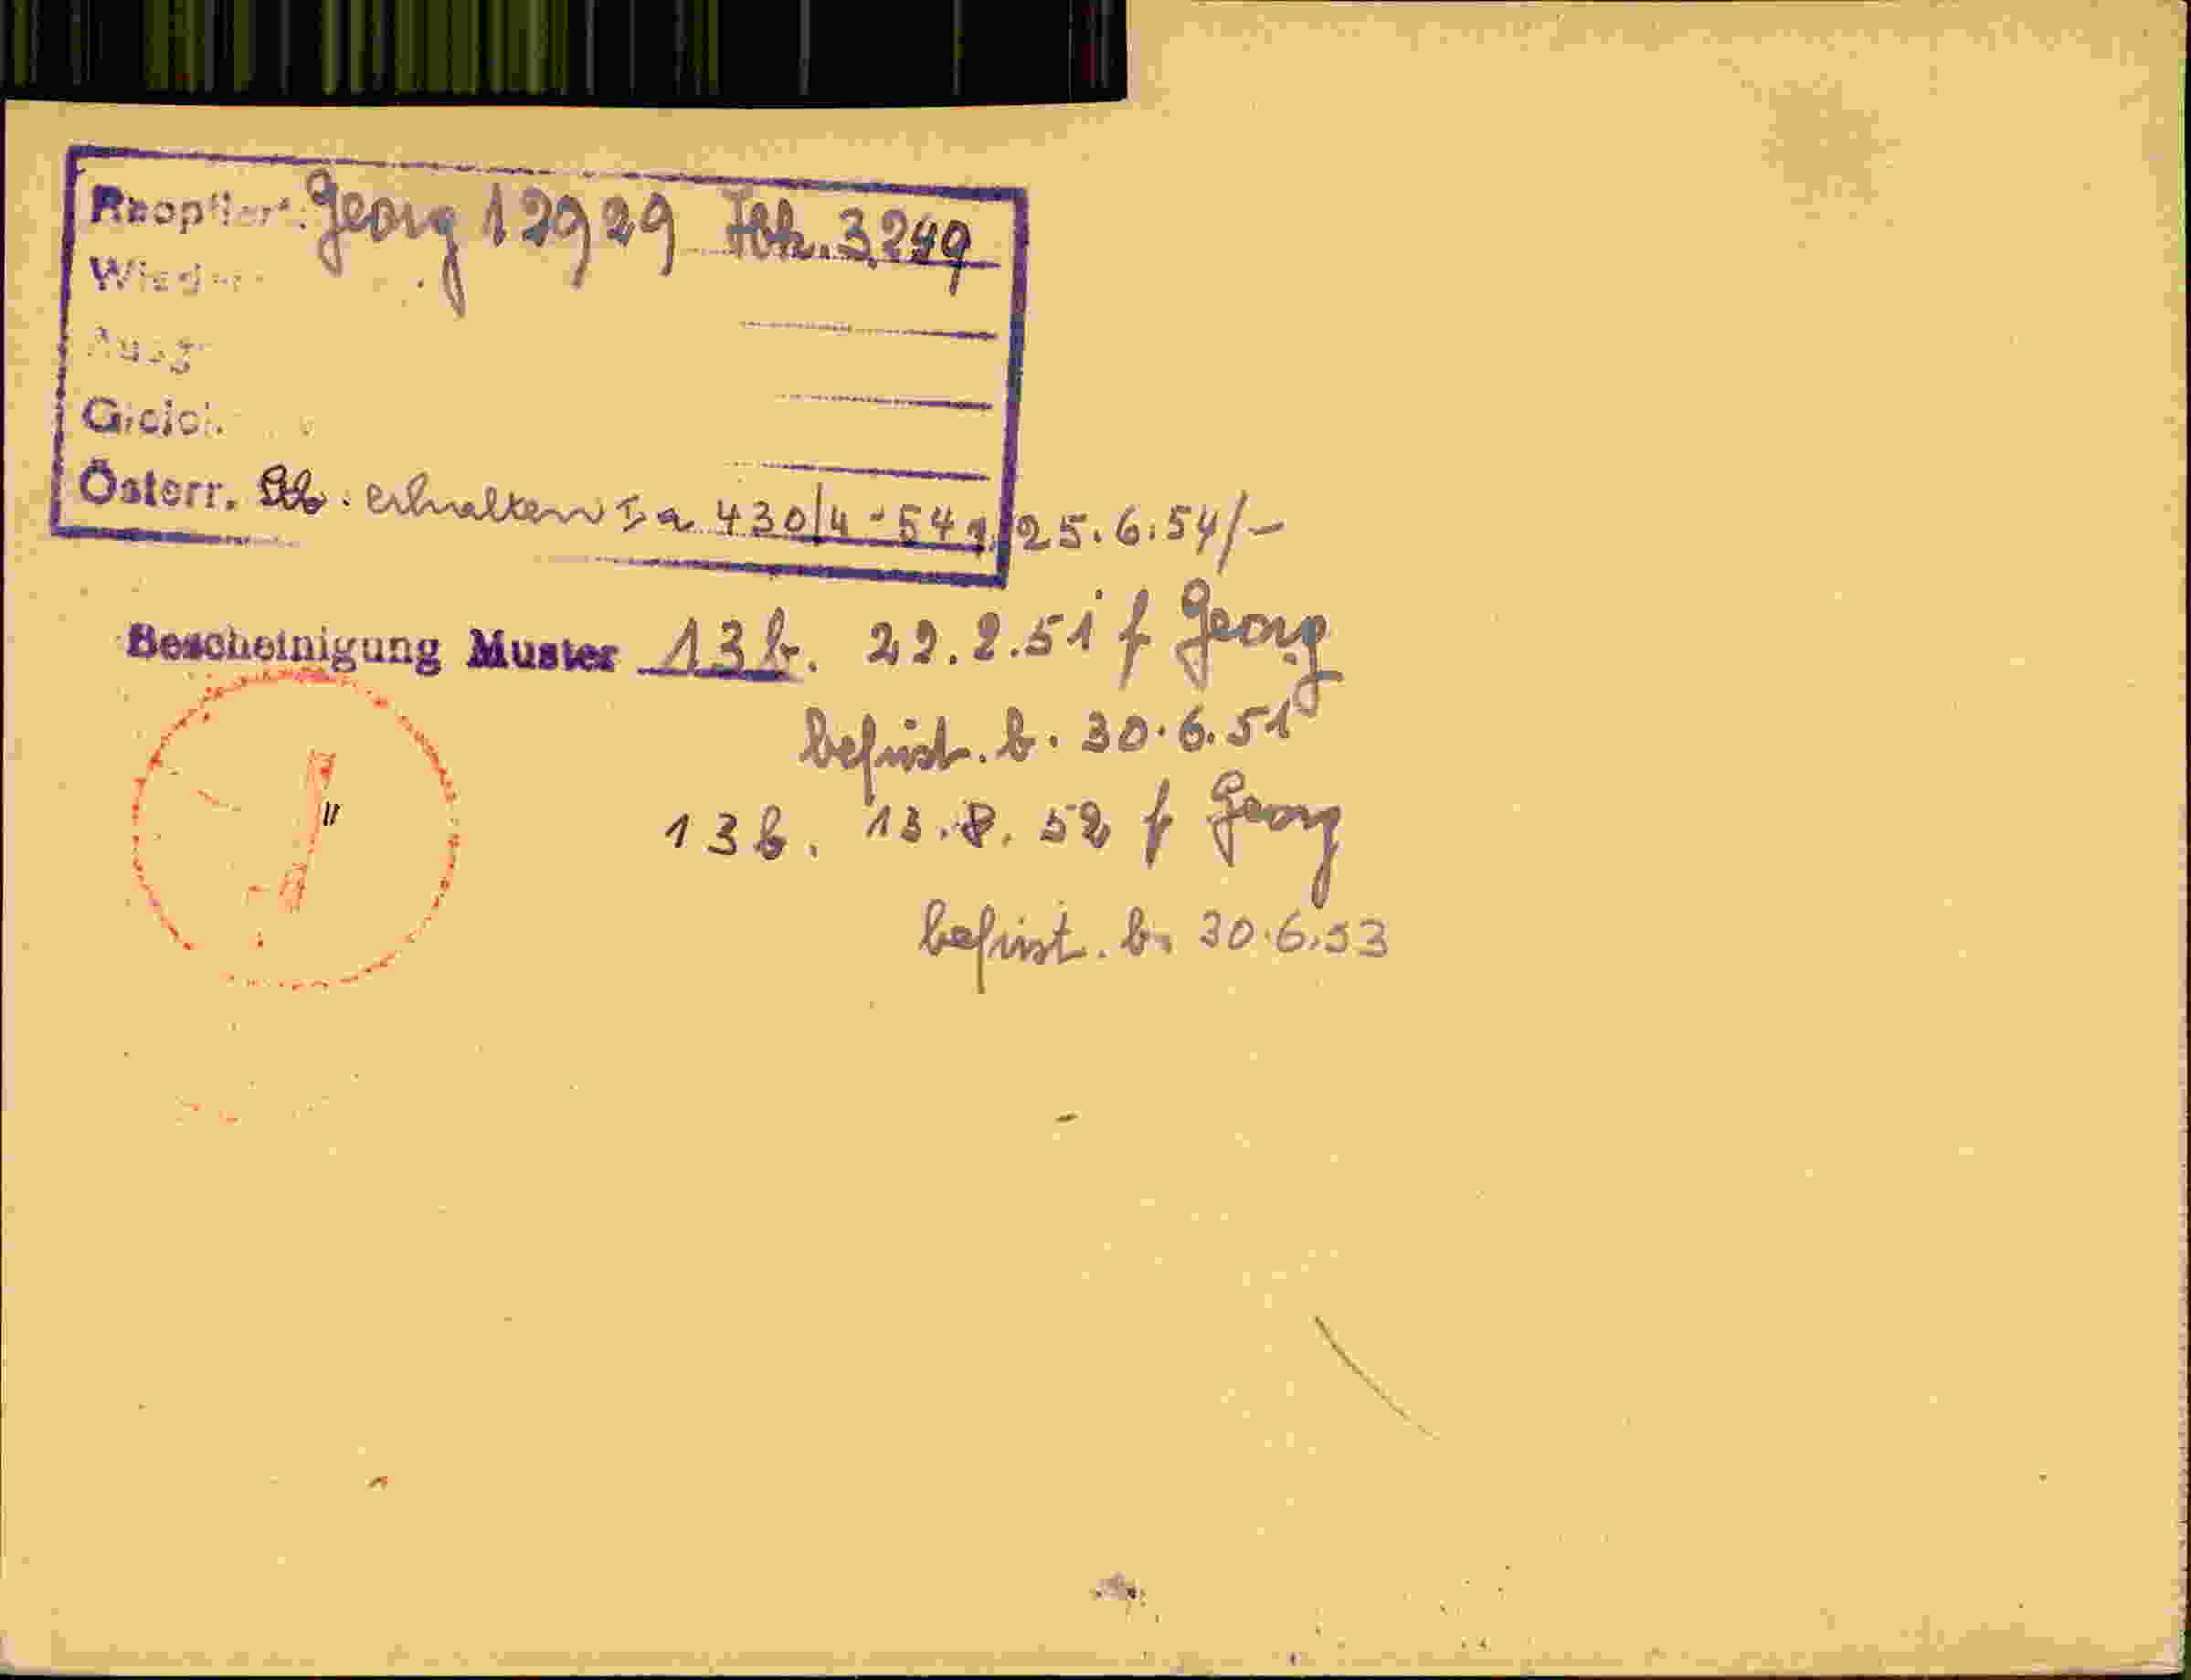 Reoptiert: Georg 12929 3249
Österr. Stb. erhalten Ia 430/4-54 v. 25.6.54/-
Bescheinigung Muster 13b. 22.2.51 f Georg
befrist. b. 30.6.51
13b. 13.8.52 f Georg
befrist. b. 30.6.53